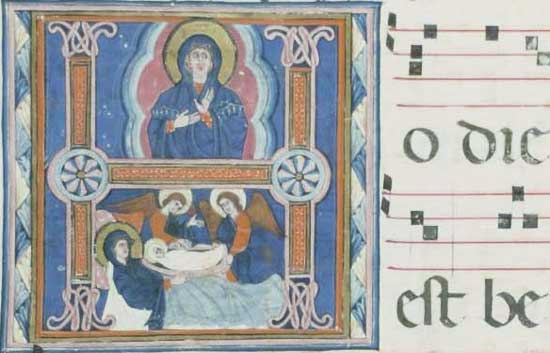 H
o dic
est be